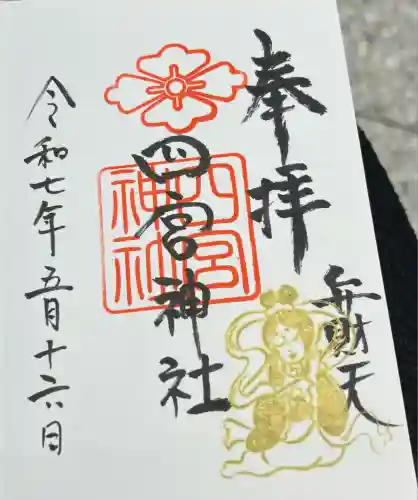 奉拝
弁財天
四宮神社
四宮神社
令和七年五月十六日